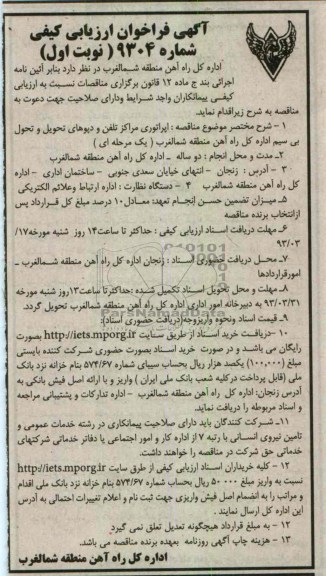 آگهی فراخوان ارزیابی کیفی
شماره ۹۳۰۴ ( نوبت اول )
اداره کل راه آهن منطقه شـمالغرب در نظر دارد بنابر آئین نامه
اجرائی بند ج ماده ۱۲ قانون برگزاری مناقصات نسبت به ارزیابی
کیفـی پیمانکاران واجد شـرایط ودارای صلاحیت جهت دعوت به
مناقصه به شرح زیراقدام نماید.
۱ - شرح مختصر موضوع مناقصه : اپراتوری مراکز تلفن و دپوهای تحویل و تحول
بی سیم اداره کل راه آهن منطقه شمالغرب ( یک مرحله ای )
۲ـ مدت و محل انجام : دو ساله ـ اداره کل راه آهن منطقه شمالغرب
۳ - آدرس : زنجان - انتهای خیابان سعدی جنوبی - ساختمان اداری - اداره
کل راه آهن منطقه شمالغرب ۴ - دستگاه نظارت : اداره ارتباط وعلائم الکتریکی
۵ـ میـزان تضمین حسـن انجام تعهد: معـادل۱۰ درصد مبلغ کل قـرارداد پس
ازانتخاب برنده مناقصه
۶ـ مهلت دریافت اسـناد ارزیابی کیفی : حداکثر تا ساعت۱۴ روز شنبه مورخه۱۷/
۹۳/۰۳
۷ـ محـل دریافت حضوری اسـناد : زنجان اداره کل راه آهن منطقه شـمالغرب ـ
امورقراردادها
۸ـ مهلت و محل تحویل اسـناد تکمیل شـده :حداکثر تا ساعت۱۳روز شنبه مورخه
۹۳/۰۳/۳۱ به دبیرخانه امور اداری اداره کل راه آهن منطقه شمالغرب تحویل گردد.
۹ـ قیمت اسناد ونحوه واریزوجه(دریافت حضوری اسناد):
۱۰ -دریافـت خرید اسـناد از طریق سـایت http://iets.mporg.ir بصورت
رایگان می باشـد و در صورت خریـد اسـناد بصورت حضوری شـرکت کننده بایستی
مبلغ (۱۰۰,۰۰۰) یکصد هزار ریال بحساب سیبای شماره ۵۷۴/۶۷ بنام خزانه نزد بانک
ملی (قابل پرداخت درکلیه شعب بانک ملی ایران ) واریز و با ارائه اصل فیش بانکی به
آدرس زنجان: اداره کل راه آهن منطقه شمالغرب - اداره تدارکات و پشتیبانی مراجعه
و اسناد مربوطه را دریافت نماید.
۱۱ـ شـرکت کنندگان باید دارای صلاحیت پیمانکاری در رشته خدمات عمومی و
تامین نیروی انسـانی با رتبه ۷ از اداره کار و امور اجتماعی یا دفاتر خدماتی شرکتهای
خدماتی حق شرکت در مناقصه را خواهند داشت.
۱۲ - کلیه خریداران اسـناد ارزیابی کیفی از طرق سایت http://iets.mporg.ir
نسبت به واریز مبلغ ۵۰۰۰۰ ریال بحساب شماره ۵۷۴/۶۷ بنام خزانه نزد بانک ملی اقدام
و مراتب را به انضمام اصل فیش واریزی جهت ثبت نام و اعلام تغییرات احتمالی به آدرس
این اداره کل ارسال نمایند .
۱۲ - به مبلغ قرارداد هیچگونه تعدیل تعلق نمی گیرد
۱۳ - هزینه چاپ آگهی روزنامه بعهده برنده مناقصه می باشد.
اداره کل راه آهن منطقه شمالغرب